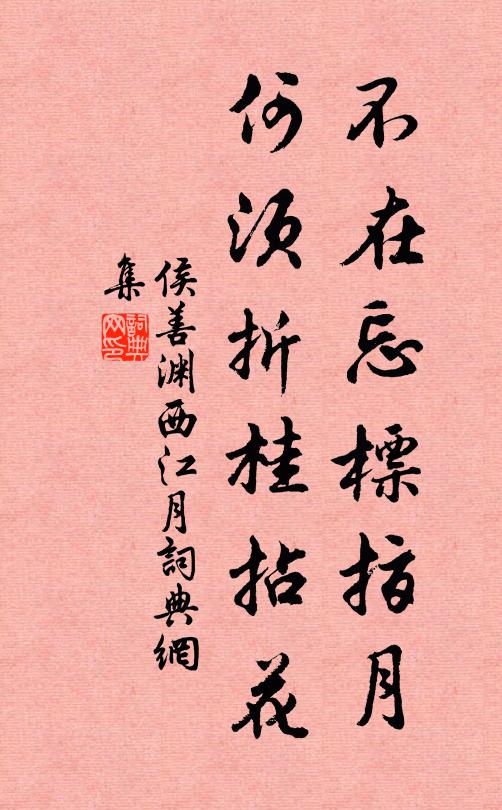 不在忘標指月
何須折桂拈花
侯善渊西江月詞典網
集
詞典網印